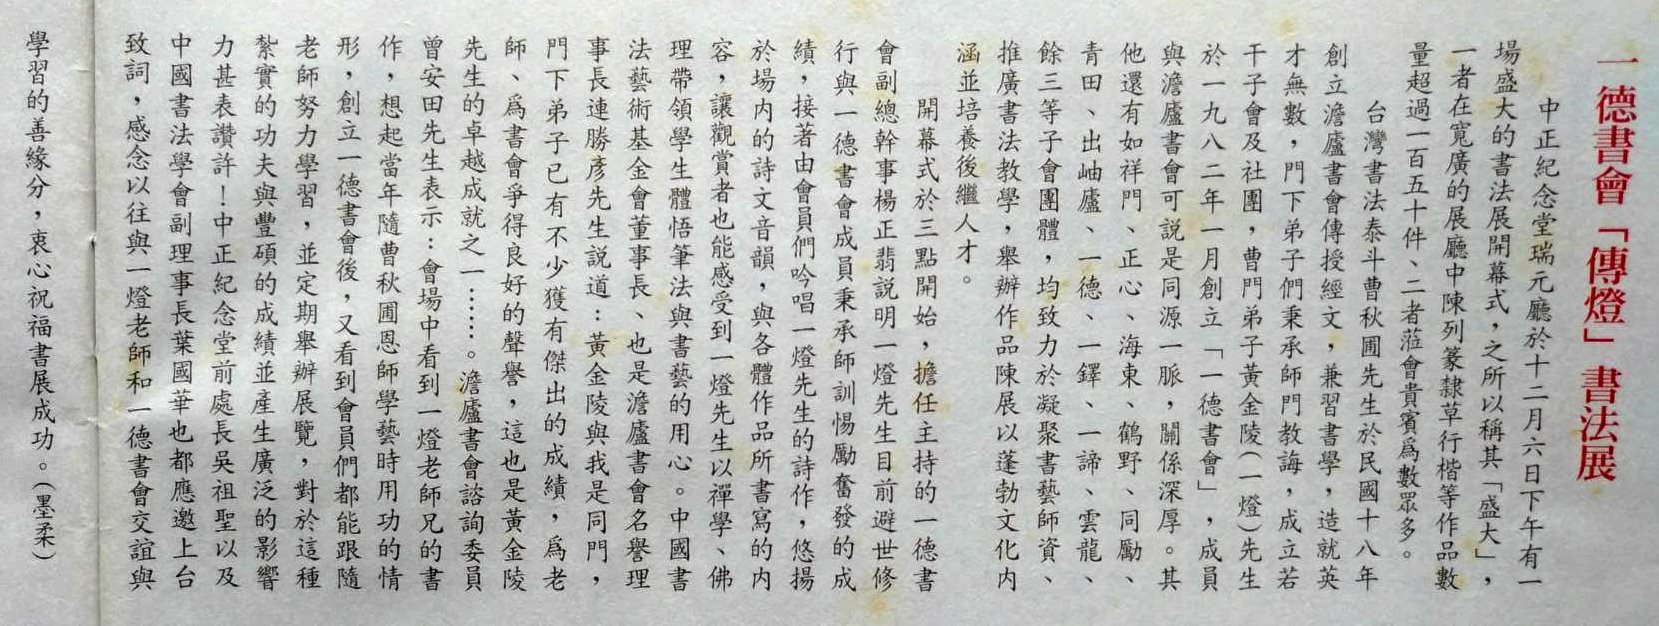 一德書會「傳燈」書法展
中正紀念堂瑞元廳於十二月六日下午有一
場盛大的書法展開幕式，之所以稱其「盛大」，
一者在寬廣的展廳中陳列篆隸草行楷等作品數
量超過一百五十件、二者蒞會貴賓爲數眾多。
台灣書法泰斗曹秋圃先生於民國十八年
創立澹廬書會傳授經文，兼習書學，造就英
才無數，門下弟子們秉承師門教誨，成立若
干子會及社團，曹門弟子黃金陵(一燈)先生
於一九八二年一月創立「一德書會」，成員
與澹廬書會可說是同源一脈，關係深厚。其
他還有如祥門、正心、海東、鶴野、同勵、
青田、出岫廬、一德、一鐸、一諦、雲龍、
餘三等子會團體，均致力於凝聚書藝師資、
推廣書法教學，舉辦作品陳展以蓬勃文化內
涵並培養後繼人才。
開幕式於三點開始，擔任主持的一德書
會副總幹事楊正翡說明一燈先生目前避世修
行與一德書會成員秉承師訓惕勵奮發的成
績，接著由會員們吟唱一燈先生的詩作，悠揚
於場內的詩文音韻，與各體作品所書寫的內
容，讓觀賞者也能感受到一燈先生以禪學、佛
理帶領學生體悟筆法與書藝的用心。中國書
法藝術基金會董事長、也是澹廬書會名譽理
事長連勝彥先生說道：黃金陵與我是同門，
門下弟子已有不少獲有傑出的成績，爲老
師、爲書會爭得良好的聲譽，這也是黃金陵
先生的卓越成就之一……。澹廬書會諮詢委員
曾安田先生表示：會場中看到一燈老師兄的書
作，想起當年隨曹秋圃恩師學藝時用功的情
形，創立一德書會後，又看到會員們都能跟隨
老師努力學習，並定期舉辦展覽，對於這種
紮實的功夫與豐碩的成績並產生廣泛的影響
力甚表讚許！中正紀念堂前處長吳祖聖以及
中國書法學會副理事長葉國華也都應邀上台
致詞，感念以往與一燈老師和一德書會交誼與
學習的善緣分，衷心祝福書展成功。(墨柔)